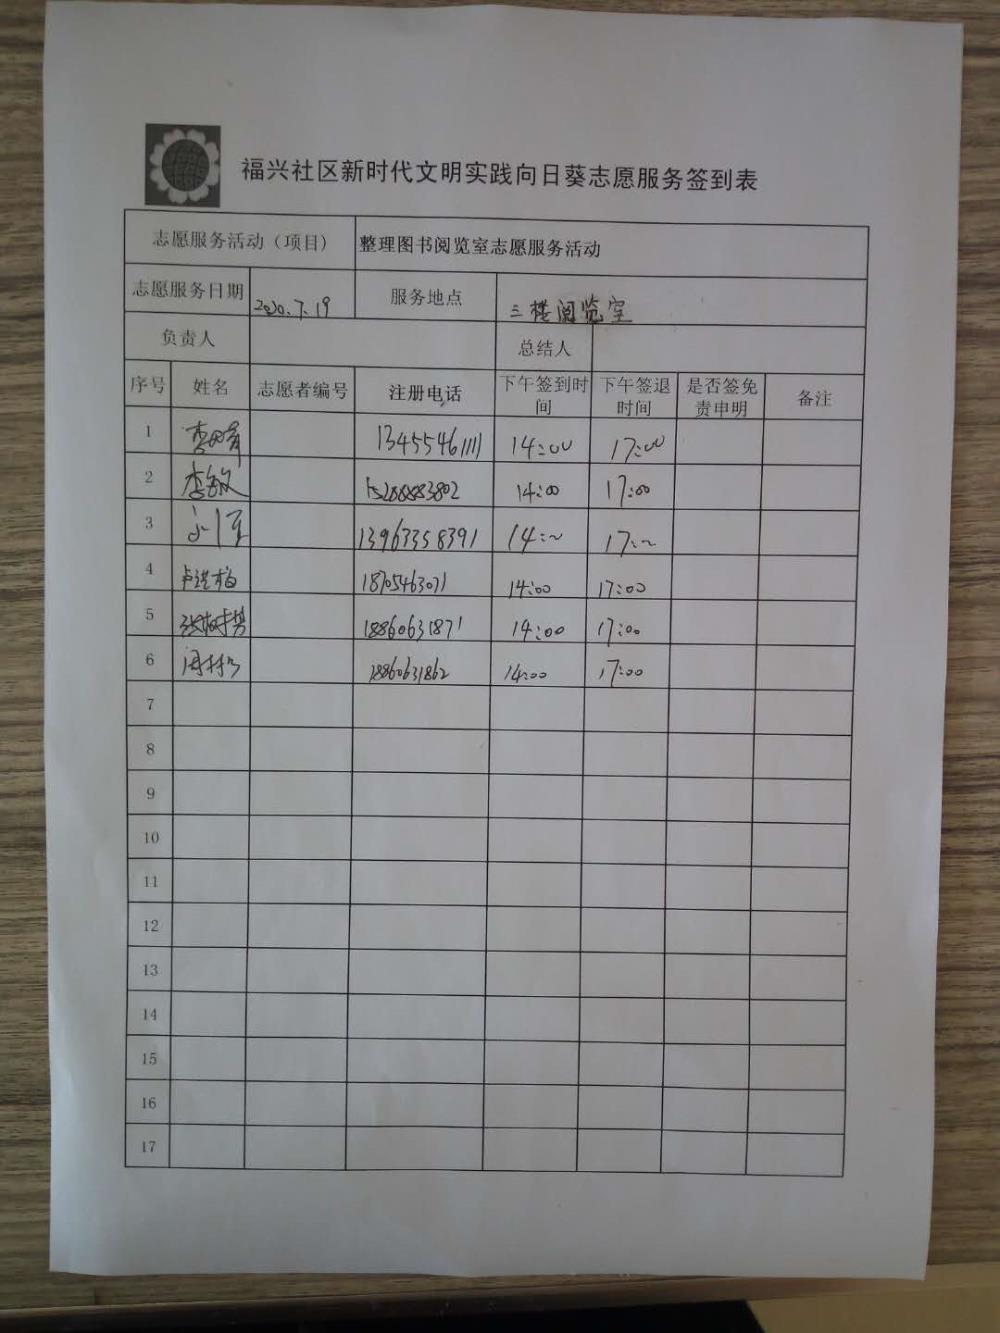 福兴社区新时代文明实践向日葵志愿服务签到表
志愿服务活动（项目） 整理图书阅览室志愿服务活动
志愿服务日期 2020.7.19 服务地点 三楼阅览室
负责人 总结人
序号 姓名 志愿者编号 注册电话 下午签到时间 下午签退时间 是否签免责申明 备注
1 13455461111 14:00 17:00
2 李敏 15288883802 14:00 17:00
3 13963358391 14:~ 17:~
4 18705463071 14:00 17:00
5 18860631871 14:00 17:00
6 18860631862 14:00 17:00
7
8
9
10
11
12
13
14
15
16
17